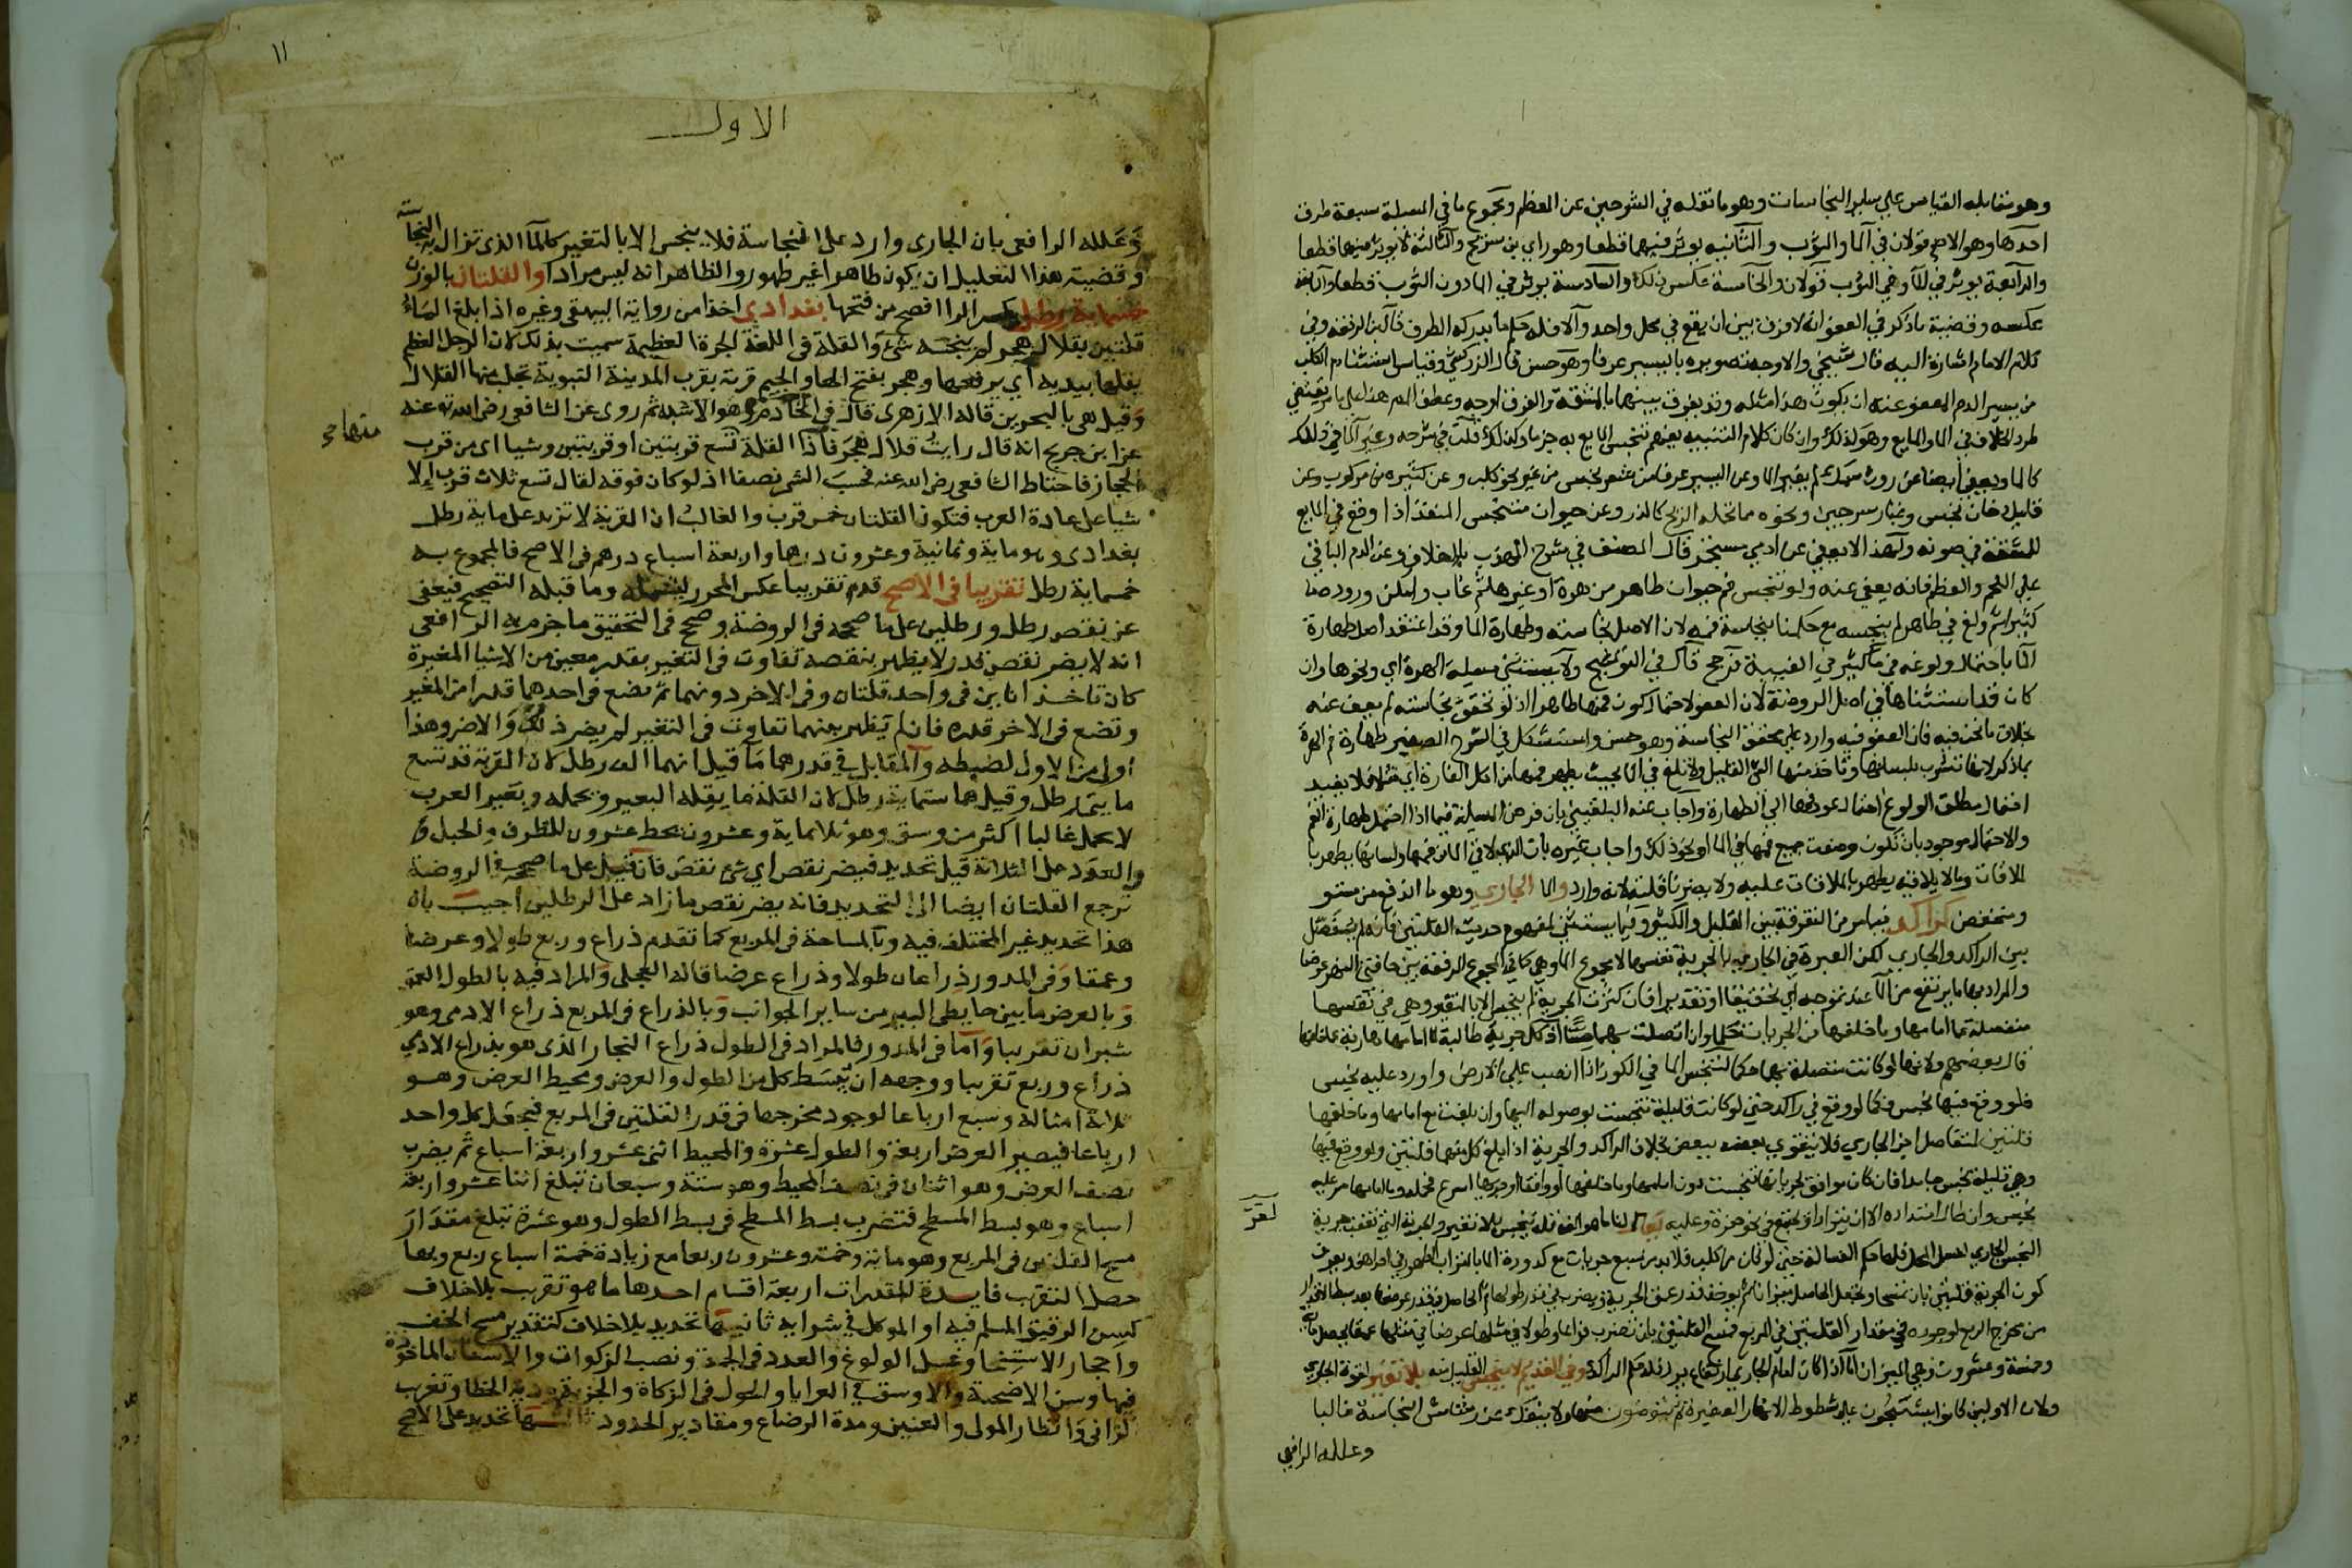 وهو مقابله القياس علي ساير النجاسات وهو ما نقله في الشرحين عن المعظم ومجموع ما في المسئلة سبعة طرق
احدها وهو الاصح قولان في الما والثوب والثانيه يوثر فيهما قطعا وهو راي بن سريج والثالثة لا يوثر فيهما قطعا
والرابعة يوثر في الما وفي الثوب قولان والخامسة عكس ذلك والسادسة يوثر في الما دون الثوب قطعا والسابعة
عكسه وقضية ما ذكر في العفو انه لا فرق بين ان يقع في محل واحد والا فله حكم ما يدركه الطرف قال بن الرفعه وفي
كلام الامام اشارة اليه قال شيخي والاوجه تصويره باليسير عرفا وهو حسن قال الزركشي وقياس استثنا دم الكلب
من يسير الدم المعفو عنه ان يكون هذا مثله وقد يفرق بينهما بالمشقة والفرق اوجه وعطف المص هذا علي ما مر يقتضي
طرد الخلاف في الما والمايع وهو كذلك وان كان كلام التنبيه يفهم تنجس المايع به جزما وكذلك قلت في شرحه وغير الما في ذلك
كالما ويعفى ايضا عن روث سمك لم يغير الما وعن اليسير عرفا من شعر نجس من غير نحو كلب وعن كثيره من مركوب وعن
قليل دخان نجس وغبار سرجين ونحوه مما تحمله الريح كالذر وعن حيوان متنجس المنفذ اذا وقع في المايع
للمشقة في صونه ولهذا لا يعفي عن ادمي مستجمر قال المصنف في شرح المهذب بلا خلاف وعن الدم الباقي
علي اللحم والعظم فانه يعفي عنه ولو تنجس فم حيوان طاهر من هرة او غيرها ثم غاب وامكن وروده ما
كثيرا ثم ولغ في طاهر لم ينجسه مع حكمنا بنجاسة فمه لان الاصل نجاسته وطهارة الما وقد اعتضد اصل طهارة
الما باحتمال ولوغه في ما كثير في الغيبة فرجح قال في التوشيح ولا يستثنى مسئلة الهرة اي ونحوها وان
كان قد استثناها في اصل الروضة لان العفو لاحتمال كون فمها طاهرا اذ لو تحقق نجاسته لم يعف عنه
بخلاف ما نحن فيه فان العفو فيه وارد علي محقق النجاسة وهو حسن واستشكل في الشرح الصغير طهارة فم الهرة
بما ذكر لانها تشرب بلسانها وتاخذ منها الشي القليل ولا تلغ في الما بحيث يطهر فمها من اكل الفارة اي مثلا فلا يفيد
احتمال مطلق الولوغ احتمال عود فمها الي الطهارة واجاب عنه البلقيني بان فرض المسئلة فيما اذا احتمل طهارة الفم
والاحتمال موجود بان تكون وضعت جميع فمها في الما او نحو ذلك واجاب غيره بان الذي يلاقي الما من فمها ولسانها يطهر با
لملاقات وما لا يلاقيه يطهر بالملاقات عليه ولا يضرنا قلته لانه وارد والما الجاري وهو ما اندفع من مستو
ومنخفض كراكد فيما مر من التفرقة بين القليل والكثير وفيما يستثنى لمفهوم حديث القلتين فانه لم يفصل
بين الراكد والجاري لكن العبرة في الجاري بالجرية نفسها لا مجموع الما وهي كما في المجموع الدفعة بين حافتي النهر عرضا
والمراد بها ما يرتفع من الما عند تموجه اي تحقيقا او تقديرا فان كثرت الجرية لم ينجس الا بالتغير وهي في نفسها
منفصلة عما امامها وما خلفها من الجريات حكما وان اتصلت بهما حسا اذ كل جرية طالبة لما امامها هاربة مما خلفها
قال بعضهم ولانها لو كانت متصلة بهما حكما لتنجس الما في الكوز اذا انصب علي الارض وورد عليه نجس
فلو وقع فيها نجس فكما لو وقع في راكد حتى لو كانت قليلة تنجست بوصوله اليها وان بلغت مع امامها وما خلفها
قلتين لتفاصل اجزا الجاري فلا يتقوي بعضه ببعض بخلاف الراكد والجرية اذا بلغ كل منهما قلتين ولو وقع فيها
وهي قليلة نجس جامد فان كان موافق لجريانها تنجست دون امامها وما خلفها او واقفا او جريها اسرع فمحله وما امامها مر عليه
نجس وان طال امتداده الا ان يتراد او يجتمع في نحو حفرة وعليه يقال لنا ما هو الف قلة ينجس بلا تغير والجرية التي تعقب جرية
النجس الجاري تغسل المحل فلها حكم الغسالة حتى لو كان من كلب فلا بد من سبع جريات مع كدورة الما بالتراب الطهور في احداهن ويعرف
كون الجرية قلتين بان تمسحا ويجعل الحاصل ميزانا ثم يوخذ قدر عمق الجرية ويضرب في قدر طولها ثم الحاصل في قدر عرضها بعد بسط الاقدار
من مخرج الربع لوجوده في مقدار القلتين في المربع فمسح القلتين بان تضرب ذراعا وربعا طولا في مثلهما عرضا في مثلهما عمقا يحصل ماية
وخمسة وعشرون وهي الميزان اما اذا كان امام الجاري ارتفاع يرده فله حكم الراكد وفي القديم لا ينجس القليل منه بلا تغير لقوة الجاري
ولان الاولين كانوا يستنجون علي شطوط الانهار الصغيرة ثم يتوضون منها ولا ينفك عن رشاش النجاسة غالبا
وعلله الرافعي
١١
الاول
وعلله الرافعى بان الجارى وارد على النجاسة فلا ينجس الا بالتغير كالما الذى تزال به النجاسة
وقضيته هذا التعليل ان يكون طاهرا غير طهور والظاهر انه ليس مرادا والقلتان بالوزن
خمسماية رطل بكسر الرا افصح من فتحها بغدادى اخذا من رواية البيهقى وغيره اذا بلغ الماء
قلتين بقلال هجر لم ينجسه شئ والقلة فى اللغة الجرة العظيمة سميت بذلك لان الرجل العظيم
يقلها بيديه اي يرفعها وهجر بفتح الها والجيم قرية بقرب المدينة النبوية تجلب منها القلال
وقيل هى بالبحرين قاله الازهرى قال فى الخادم وهو الاشبه ثم روى عن الشافعى رضى الله عنه
عن ابن جريج انه قال رايت قلال هجر فاذا القلة تسع قربتين او قربتين وشيا اى من قرب
الحجاز فاحتاط الشافعى رضى الله عنه فحسب الشى نصفا اذ لو كان فوقه لقال تسع ثلاث قرب الا
شيا على عادة العرب فتكون القلتان خمس قرب والغالب ان القربة لا تزيد على ماية رطل
بغدادى وهو ماية وثمانية وعشرون درهما واربعة اسباع درهم فى الاصح فالمجموع به
خمسماية رطل تقريبا فى الاصح قدم تقريبا عكس المحرر ليشمله وما قبله التصحيح فيعفى
عن نقص رطل ورطلين على ما صححه فى الروضة وصحح فى التحقيق ما جزم به الرافعى
انه لا يضر نقص قدر لا يظهر بنقصه تفاوت فى التغير بقدر معين من الاشيا المغيرة
كان تاخذ اناين فى واحد قلتان وفى الاخر دونهما ثم تضع فى احدهما قدرا من المغير
وتضع فى الاخر قدره فان لم يظهر بينهما تفاوت فى التغير لم يضر ذلك والا ضر وهذا
اولى من الاول لضبطه والمقابل في قدرهما ما قيل انهما الف رطل لان القربة قد تسع
مايتى رطل وقيل هما ستماية رطل لان القلة ما يقله البعير ويحمله وبعير العرب
لا يحمل غالبا اكثر من وسق وهو ثلاثماية وعشرون يحط عشرون للظرف والحبل و
والعدد على الثلاثة قيل تحديد فيضر نقص اي شى نقص فان قيل على ما صححه فى الروضة
ترجع القلتان ايضا الى التحديد فانه يضر نقص ما زاد على الرطلين اجيب بان
هذا تحديد غير المختلف فيه وبالمساحة فى المربع كما تقدم ذراع وربع طولا وعرضا
وعمقا وفى المدور ذراعان طولا وذراع عرضا قاله العجلى والمراد فيه بالطول العمق
وبالعرض ما بين حايطى البير من ساير الجوانب وبالذراع فى المربع ذراع الادمى وهو
شبران تقريبا واما فى المدور فالمراد فى الطول ذراع النجار الذى هو بذراع الادمي
ذراع وربع تقريبا ووجهه ان يبسط كل من الطول والعرض ومحيط العرض وهو
ثلاثة امثاله وسبع ارباعا لوجود مخرجها فى قدر القلتين فى المربع فيجعل كل واحد
ارباعا فيصير العرض اربعة والطول عشرة والمحيط اثنى عشر واربعة اسباع ثم يضرب
نصف العرض وهو اثنان فى نصف المحيط وهو ستة وسبعان تبلغ اثنا عشر واربعة
اسباع وهو بسط المسطح فتضرب بسط المسطح فى بسط الطول وهو عشرة تبلغ مقدار
مسح القلتين فى المربع وهو ماية وخمسة وعشرون ربعا مع زيادة خمسة اسباع ربع وبها
حصل التقريب فايدة المقدرات اربعة اقسام احدها ما هو تقريب بلا خلاف
كسن الرقيق المسلم فيه او الموكل في شرايه ثانيها تحديد بلا خلاف كتقدير مسح الخف
واحجار الاستنجا وغسل الولوغ والعدد فى الجمعة ونصب الزكوات والاسنان الماخوذة
فيها وسن الاضحية والاوسق في العرايا والحول فى الزكاة والجزية ودية الخطا وتغريب
الزانى وانظار المولى والعنين ومدة الرضاع ومقادير الحدود ثالثها تحديد على الاصح